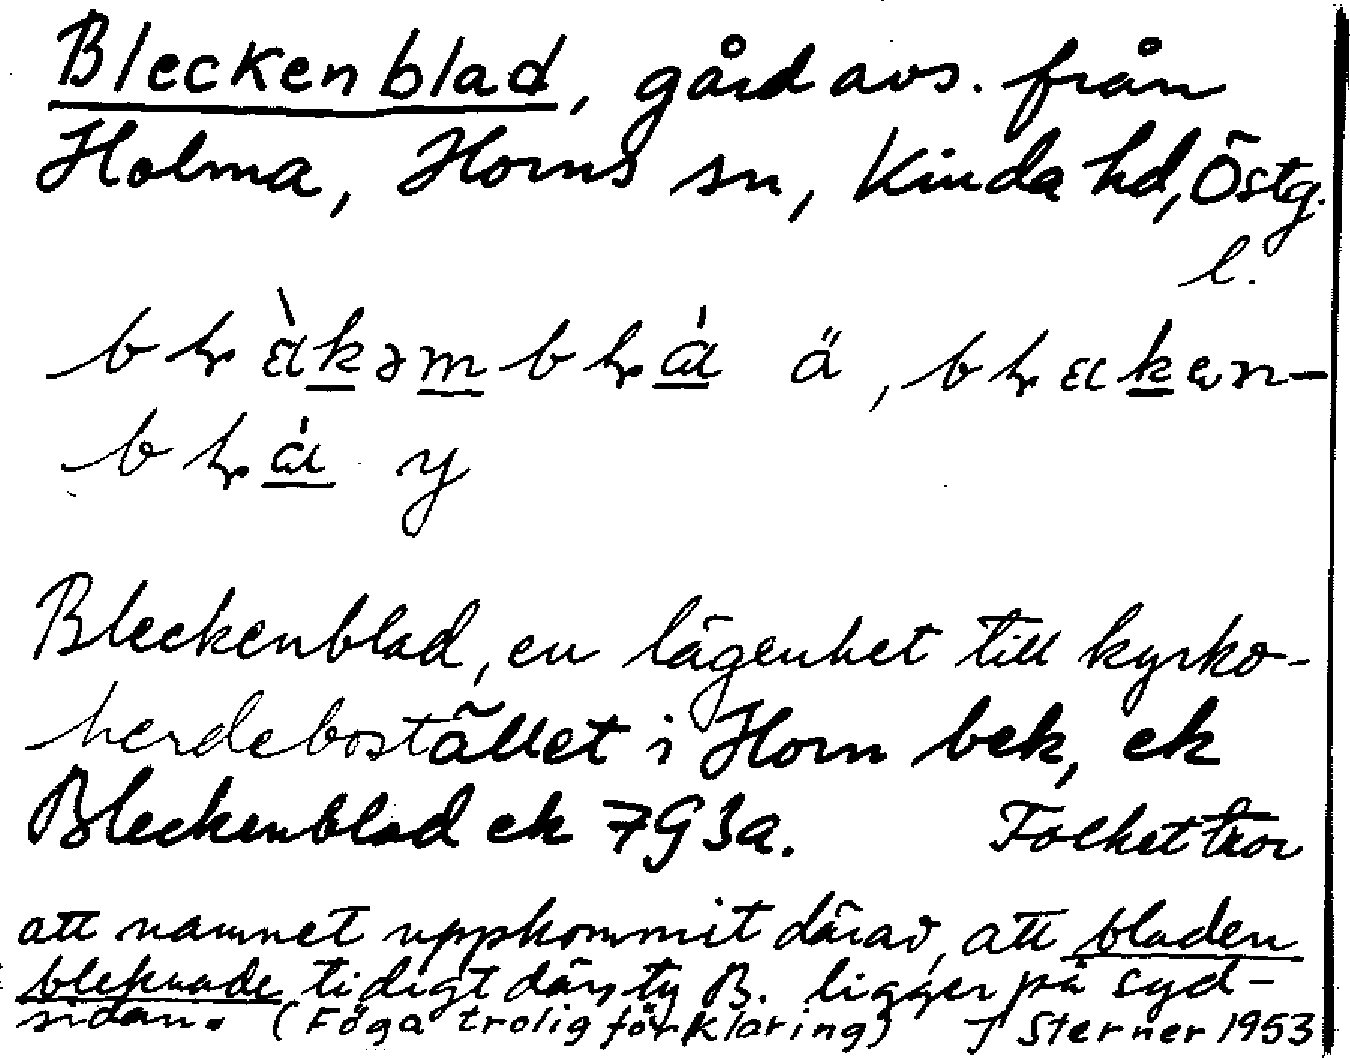 Bleckenblad, gård avs. från
Holma, Horns sn, Kinda hd, Östg.
l.
Bleckenblad, en lägenhet till kyrko-
herdebostället i Horn bek, ek
Bleckenblad ek 7G3a. Folket tror
att namnet uppkommit därav, att bladen
bleknade tidigt där, ty B. ligger på syd-
sidan. (Föga trolig förklaring) J Sterner 1953